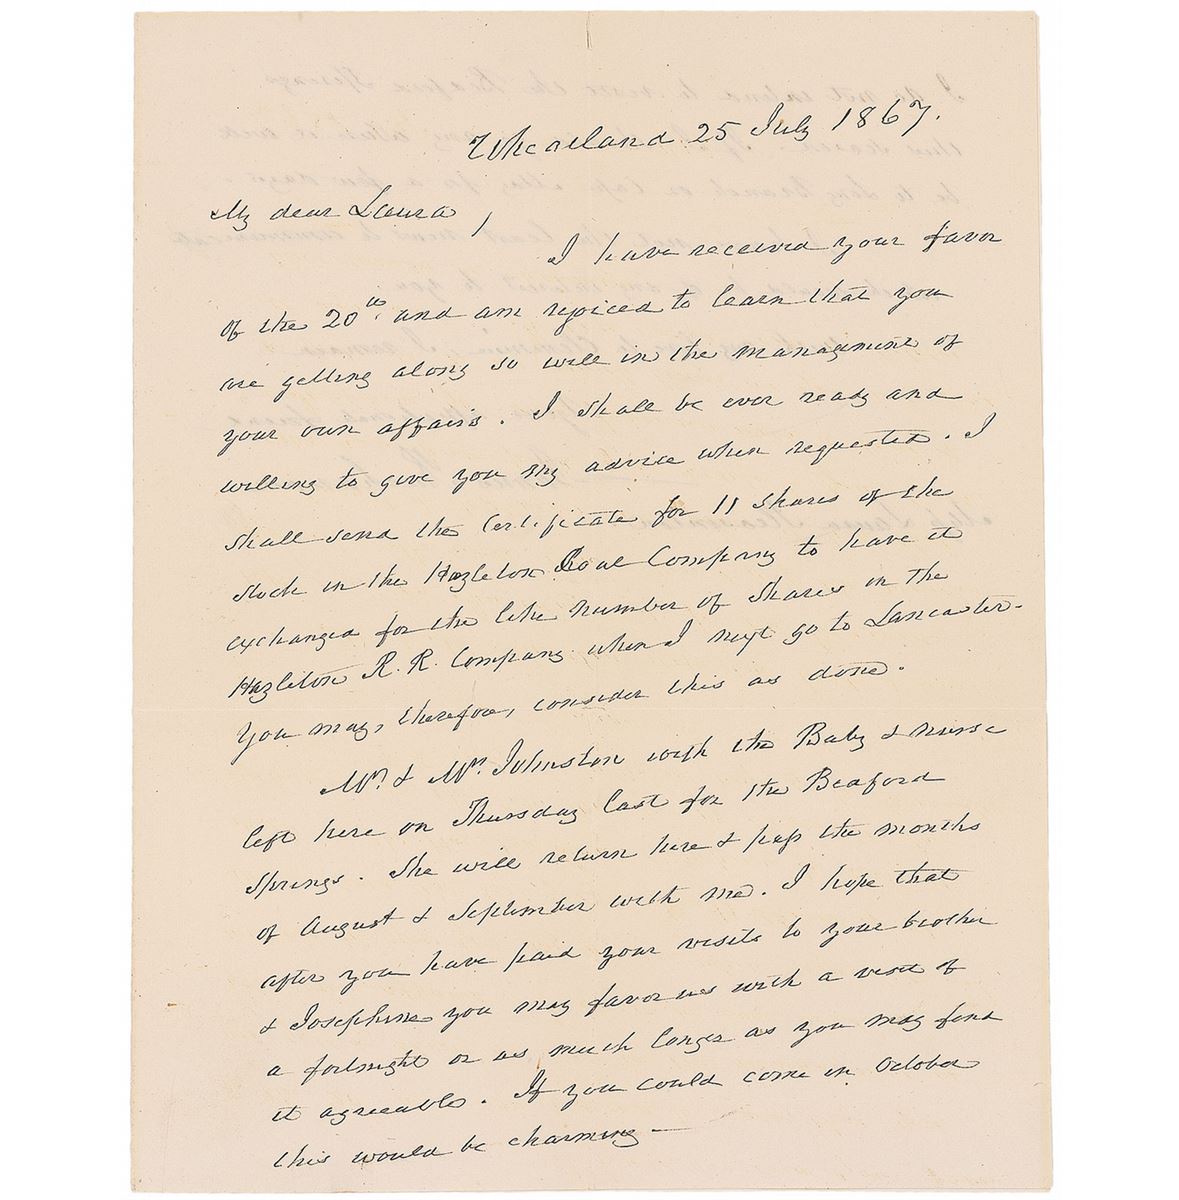 Wheatland 25 July 1867.
My dear Laura,
I have received your favor
of the 20th and am rejoiced to learn that you
are getting along so well in the management of
your own affairs. I shall be ever ready and
willing to give you my advice when requested. I
shall send the Certificate for 11 shares of the
stock in the Hazleton Coal Company to have it
exchanged for the like number of shares in the
Hazleton R. R. Company when I next go to Lancaster.
You may, therefore, consider this as done.
Mr. & Mrs. Johnston with the Baby & nurse
left here on Thursday last for the Beaford
Springs. She will return here & pass the months
of August & September with me. I hope that
after you have paid your visits to your brother
& Josephine you may favor us with a visit of
a fortnight or as much longer as you may find
it agreeable. If you could come in October
this would be charming—